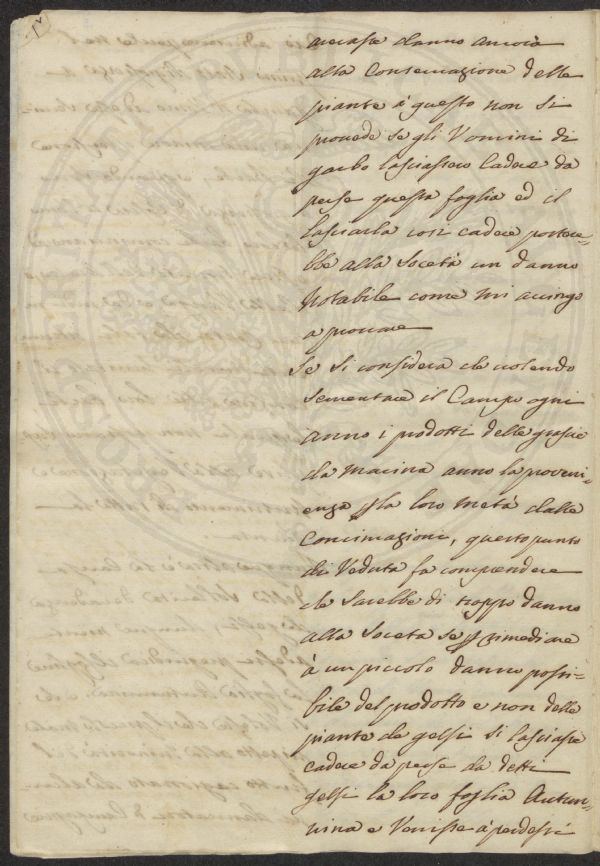 1v
arecasse danno ancora
alla Conservazione delle
piante à questo non si
provede se gli Uomini di
garbo lasciassero Cadere da
perse questa foglia ed il
lasciarla così cadere portere-
bbe alla Socetà un danno
Notabile come mi accingo
a provare
Se si considera che volendo
Sementare il Campo ogni
anno i prodotti delle grascie
da Macina anno la proveni-
enza la loro metà dalle
Concimazioni, questo punto
di Veduta fa comprendere
che Sarebbe di troppo danno
alla Socetà se rimediare
à un piccolo danno possi-
bile del prodotto e non delle
piante de gelsi si lasciasse
cadere da perse da detti
gelsi la loro foglia Autun-
nina e Venisse à perdersi